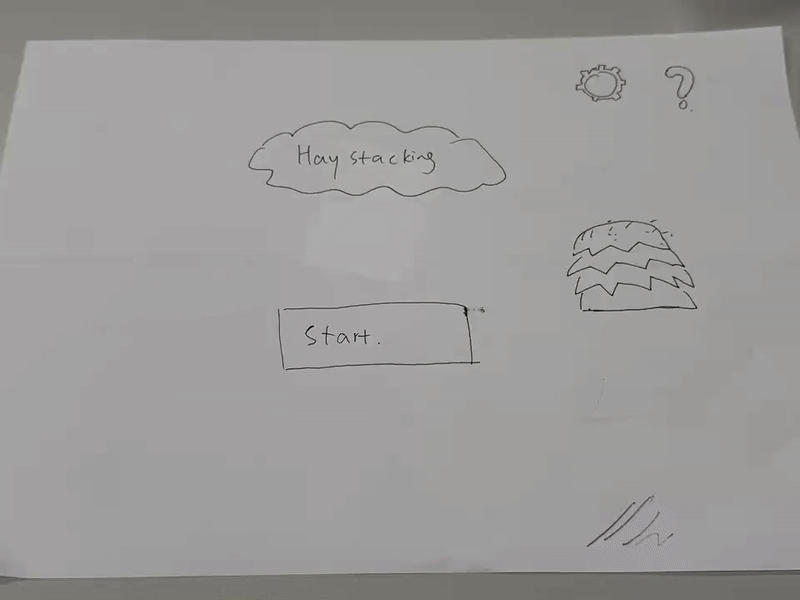 ?
Hay stacking
Start.